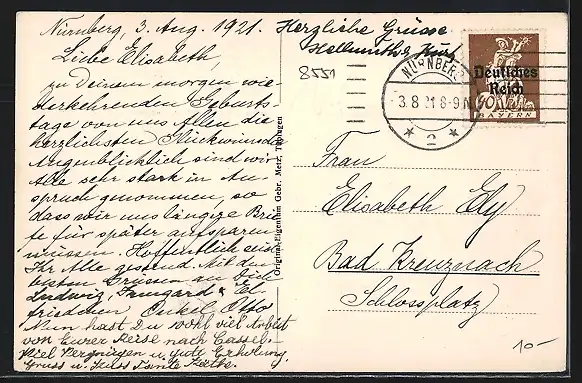 Nürnberg, 3. Aug. 1921.
Liebe Elisabeth,
zu Deinem morgen wie-
derkehrenden Geburts-
tage von uns Allen die
herzlichsten Glückwünsche
Augenblicklich sind wir
Alle sehr stark in An-
spruch genommen, so
dass wir uns längere Brie-
fe für später aufsparen
müssen. Hoffentlich seid
Ihr Alle gesund. Mit den
besten Grüssen an Dich
Ludwig, Irmgard & El-
friedchen Onkel Otto
Nun hast Du wohl viel Arbeit
von Eurer Reise nach Cassel.
Viel Vergnügen u. gute Erholung.
Gruss u. Kuss Tante Käthe.
Herzliche Grüsse
Hellmuth & Kurt
8551
Original-Eigentum Gebr. Metz, Tübingen
NÜRNBERG
3.8.21 8-9 N
* 2 *
Deutsches
Reich
40
BAYERN
Frau
Elisabeth Ely
Bad Kreuznach
Schlossplatz
10-